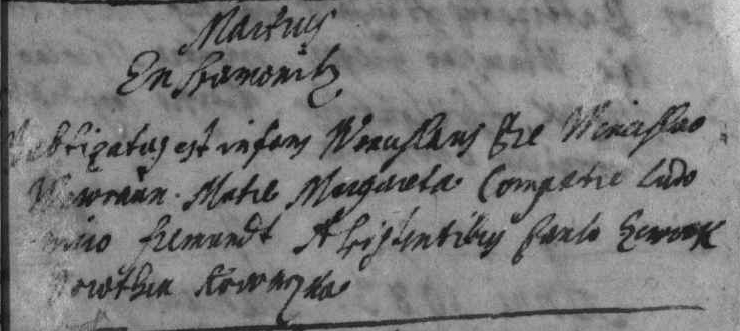 Martius
En Hramonitz
Babtizatus est infans Wenceslaus Ere Winceslao
Wawraün. Matre Margareta. Compatre Ludo
vico fremundt Assistentibus Paulo
Dorothea Kowarzka